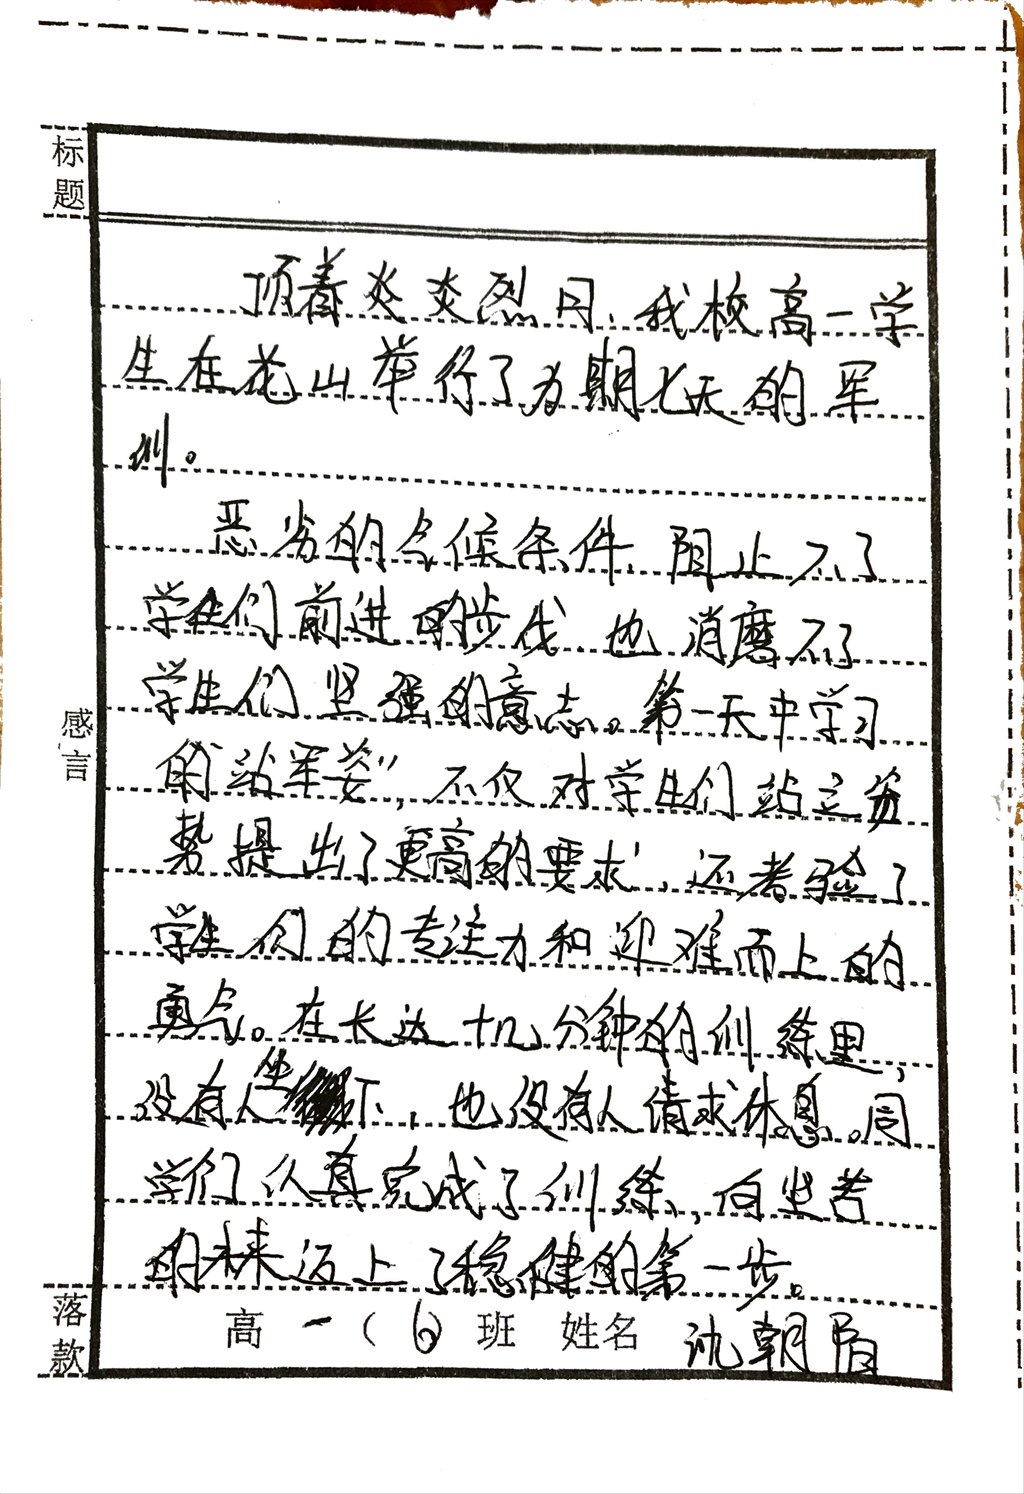 标题
顶着炎炎烈日、我校高一学
生在花山举行了为期七天的军
训。
恶劣的气候条件、阻止不了
学生们前进的步伐、也消磨不了
学生们坚强的意志。第一天中学习
的“站军姿”,不仅对学生们站立姿
势提出了更高的要求,还考验了
学生们的专注力和迎难而上的
勇气。在长达十几分钟的训练里,
没有人坐下,也没有人请求休息。同
学们认真完成了训练,向坐苦
的未来迈上了稳健的第一步。
感言
落款 高一(6)班 姓名 沈朝